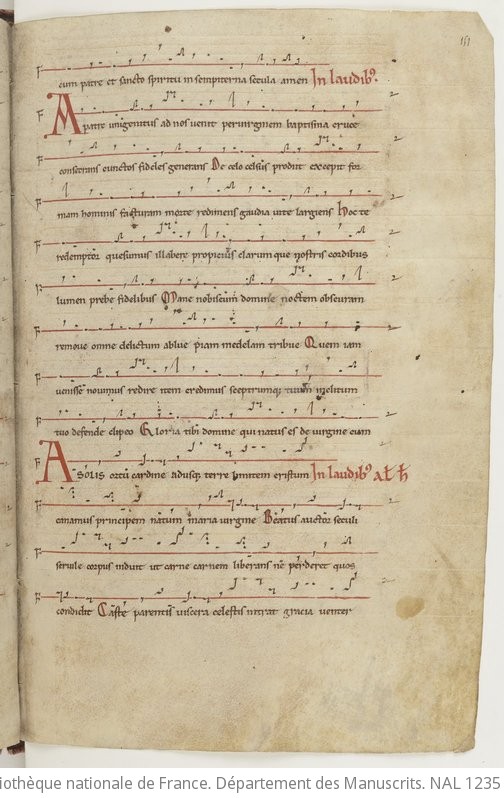 151
cum patre et sancto spiritu in sempiterna secula amen In laudib9.
A patre unigenitus ad nos venit per virginem baptisma cruce
consecrans cunctos fideles generans De celo celsus prodiit excepit for
mam hominis facturam morte redimens gaudia vite largiens Hoc te
redemptor quesumus illabere propicius clarumque nostris cordibus
lumen prebe fidelibus Mane nobiscum domine noctem obscuram
remove omne delictum ablue piam medelam tribue Quem iam
venisse novimus redire item credimus sceptrumq; tuum inclitum
tuo defende clipeo Gloria tibi domine qui natus es de virgine cum
A solis ortu cardine adusq; terre limitem cristum In laudib9 al h
canamus principem natum maria virgine Beatus auctor seculi
servile corpus induit ut carne carnem liberans ne perderet quos
condidit Caste parentis viscera celestis intrat gracia venter
iothèque nationale de France. Département des Manuscrits. NAL 1235